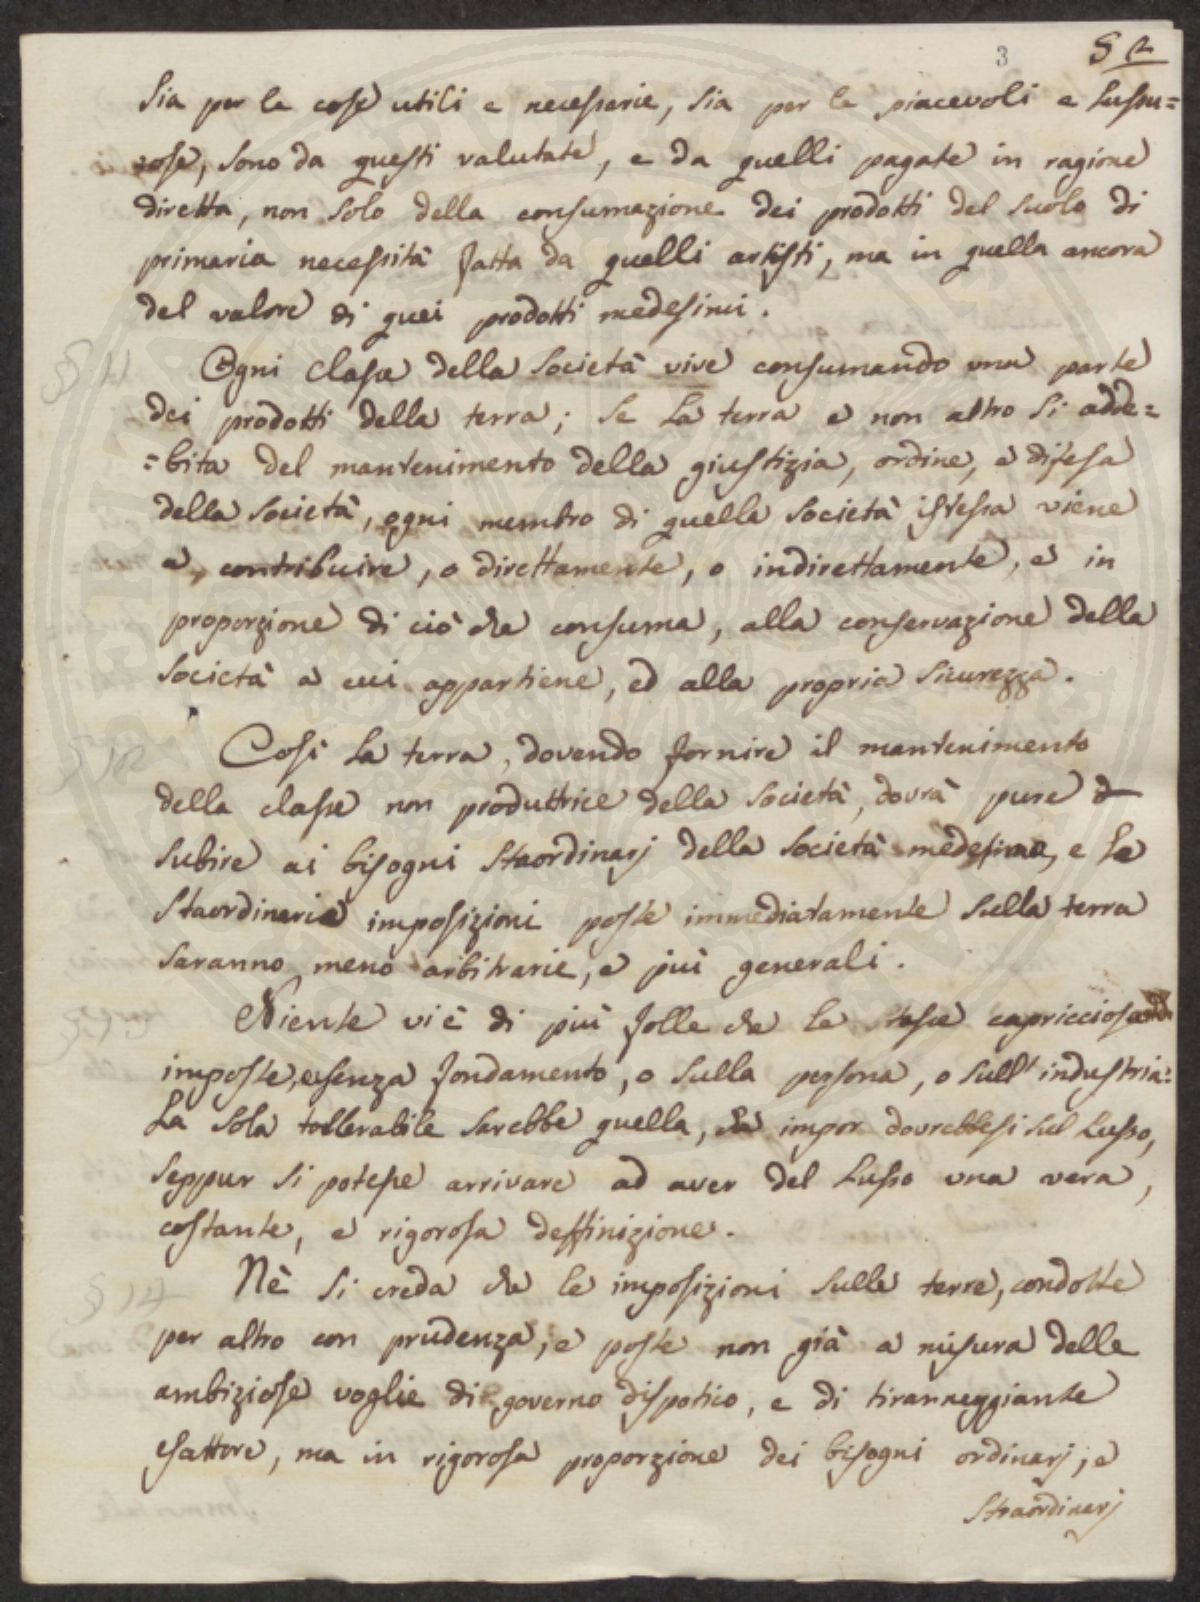 3 52
sia per le cose utili e necessarie, sia per le piacevoli e lussu=
=rose, sono da questi valutate, e da quelli pagate in ragione
diretta, non solo della consumazione dei prodotti del suolo di
primaria necessità fatta da quelli artisti, ma in quella ancora
del valore di quei prodotti medesimi.
§ 11
Ogni classe della Società vive consumando una parte
dei prodotti della terra; se la terra e non altro si adde=
=bita del mantenimento della giustizia, ordine, e difesa
della società, ogni membro di quella società istessa viene
a contribuire, o direttamente, o indirettamente, e in
proporzione di ciò che consuma, alla conservazione della
società a cui appartiene, ed alla propria sicurezza.
§ 12
Così la terra, dovendo fornire il mantenimento
della classe non produttrice della società, dovrà pure
subire ai bisogni staordinarj della società medesima, e le
staordinarie imposizioni poste immediatamente sulla terra
saranno meno arbitrarie, e più generali.
§ 13
Niente vi è di più folle che le tasse capricciose
imposte, e senza fondamento, o sulla persona, o sull' industria=
La sola tollerabile sarebbe quella, che impor dovrebbesi sul lusso,
seppur si potesse arrivare ad aver del lusso una vera,
costante, e rigorosa deffinizione.
§ 14
Nè si creda che le imposizioni sulle terre, condotte
per altro con prudenza, e poste non già a misura delle
ambiziose voglie di governo dispotico, e di tiranneggiante
esattore, ma in rigorosa proporzione dei bisogni ordinarj, e
straordinarj